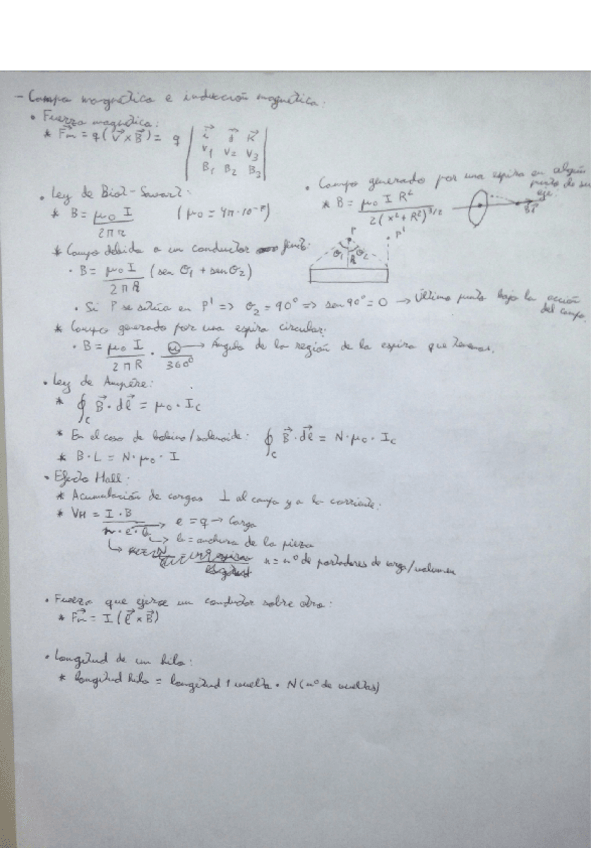 - Campo magnético e inducción magnética:
• Fuerza magnética:
* Fm = q(v⃗ x B⃗) = q | i⃗ j⃗ k⃗
V1 V2 V3
B1 B2 B3 |
• Ley de Biot-Savart:
* B = μ0 I / 2πr (μ0 = 4π·10^-7)
• Campo generado por una espira en algún punto de su eje:
* B = μ0 I R² / 2(x² + R²)^3/2
* Campo debido a un conductor finito:
• B = μ0 I / 2πR (sen θ1 + sen θ2)
P P'
θ1 θ2
R
• Si P se sitúa en P' => θ2 = 90° => sen 90° = 0 → Último punto bajo la acción del campo.
* Campo generado por una espira circular:
• B = μ0 I / 2πR · α / 360° → Ángulo de la región de la espira que tenemos.
• Ley de Ampère:
* ∮c B⃗·dℓ⃗ = μ0·Ic
* En el caso de bobina/solenoide: ∮c B⃗·dℓ⃗ = N·μ0·Ic
* B·L = N·μ0·I
• Efecto Hall:
* Acumulación de cargas ⊥ al campo y a la corriente.
* VH = I·B / n·e·b → e = q → Carga
→ b = anchura de la pieza
→ n = nº de portadores de carga/volumen
• Fuerza que ejerce un conductor sobre otro:
* Fm = I(ℓ⃗ x B⃗)
• Longitud de un hilo:
* longitud hilo = longitud 1 vuelta · N (nº de vueltas)